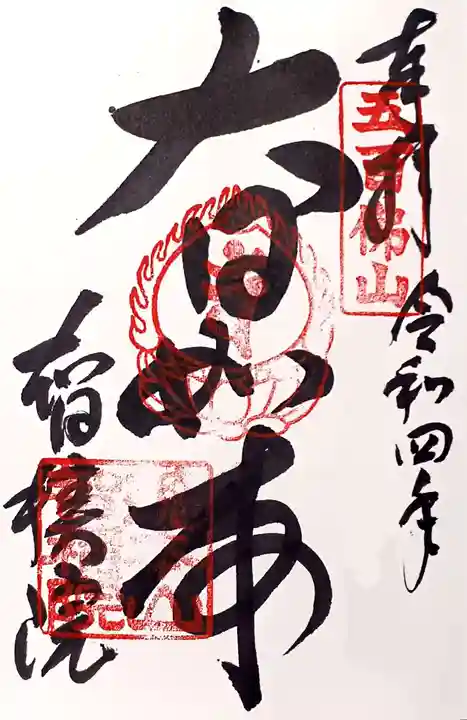 奉拝
令和四年
五百佛山
大日如来
智積院